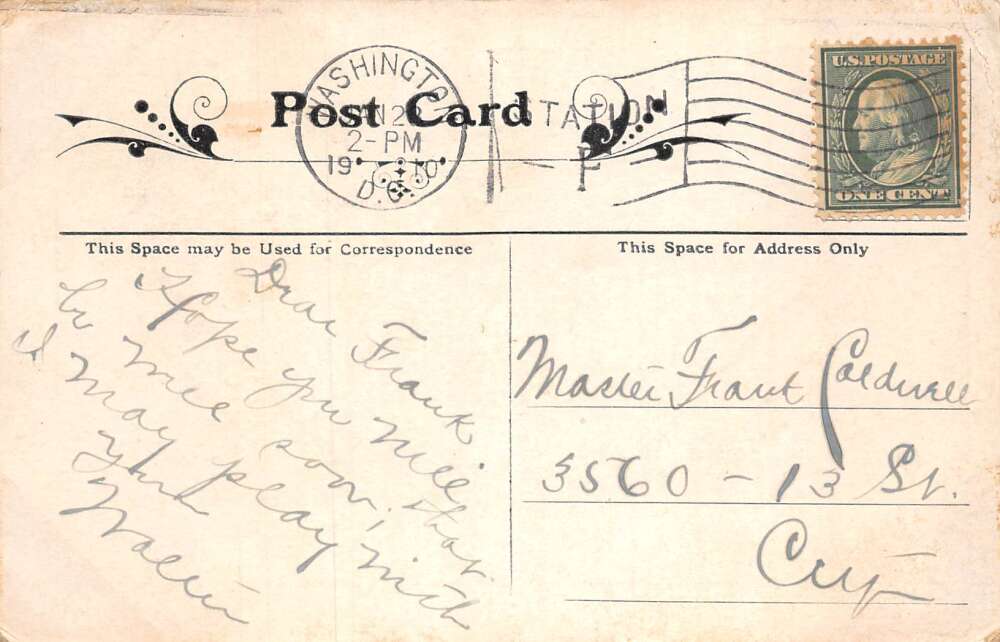 Post Card
WASHINGTON
2-PM
1910
D.C.
STATION
F
U.S. POSTAGE
ONE CENT
This Space may be Used for Correspondence
This Space for Address Only
Dear Frank
Hope you will
be well soon, that
I may play with
you
Walter
Master Frank Caldwell
3560 - 13 St.
City